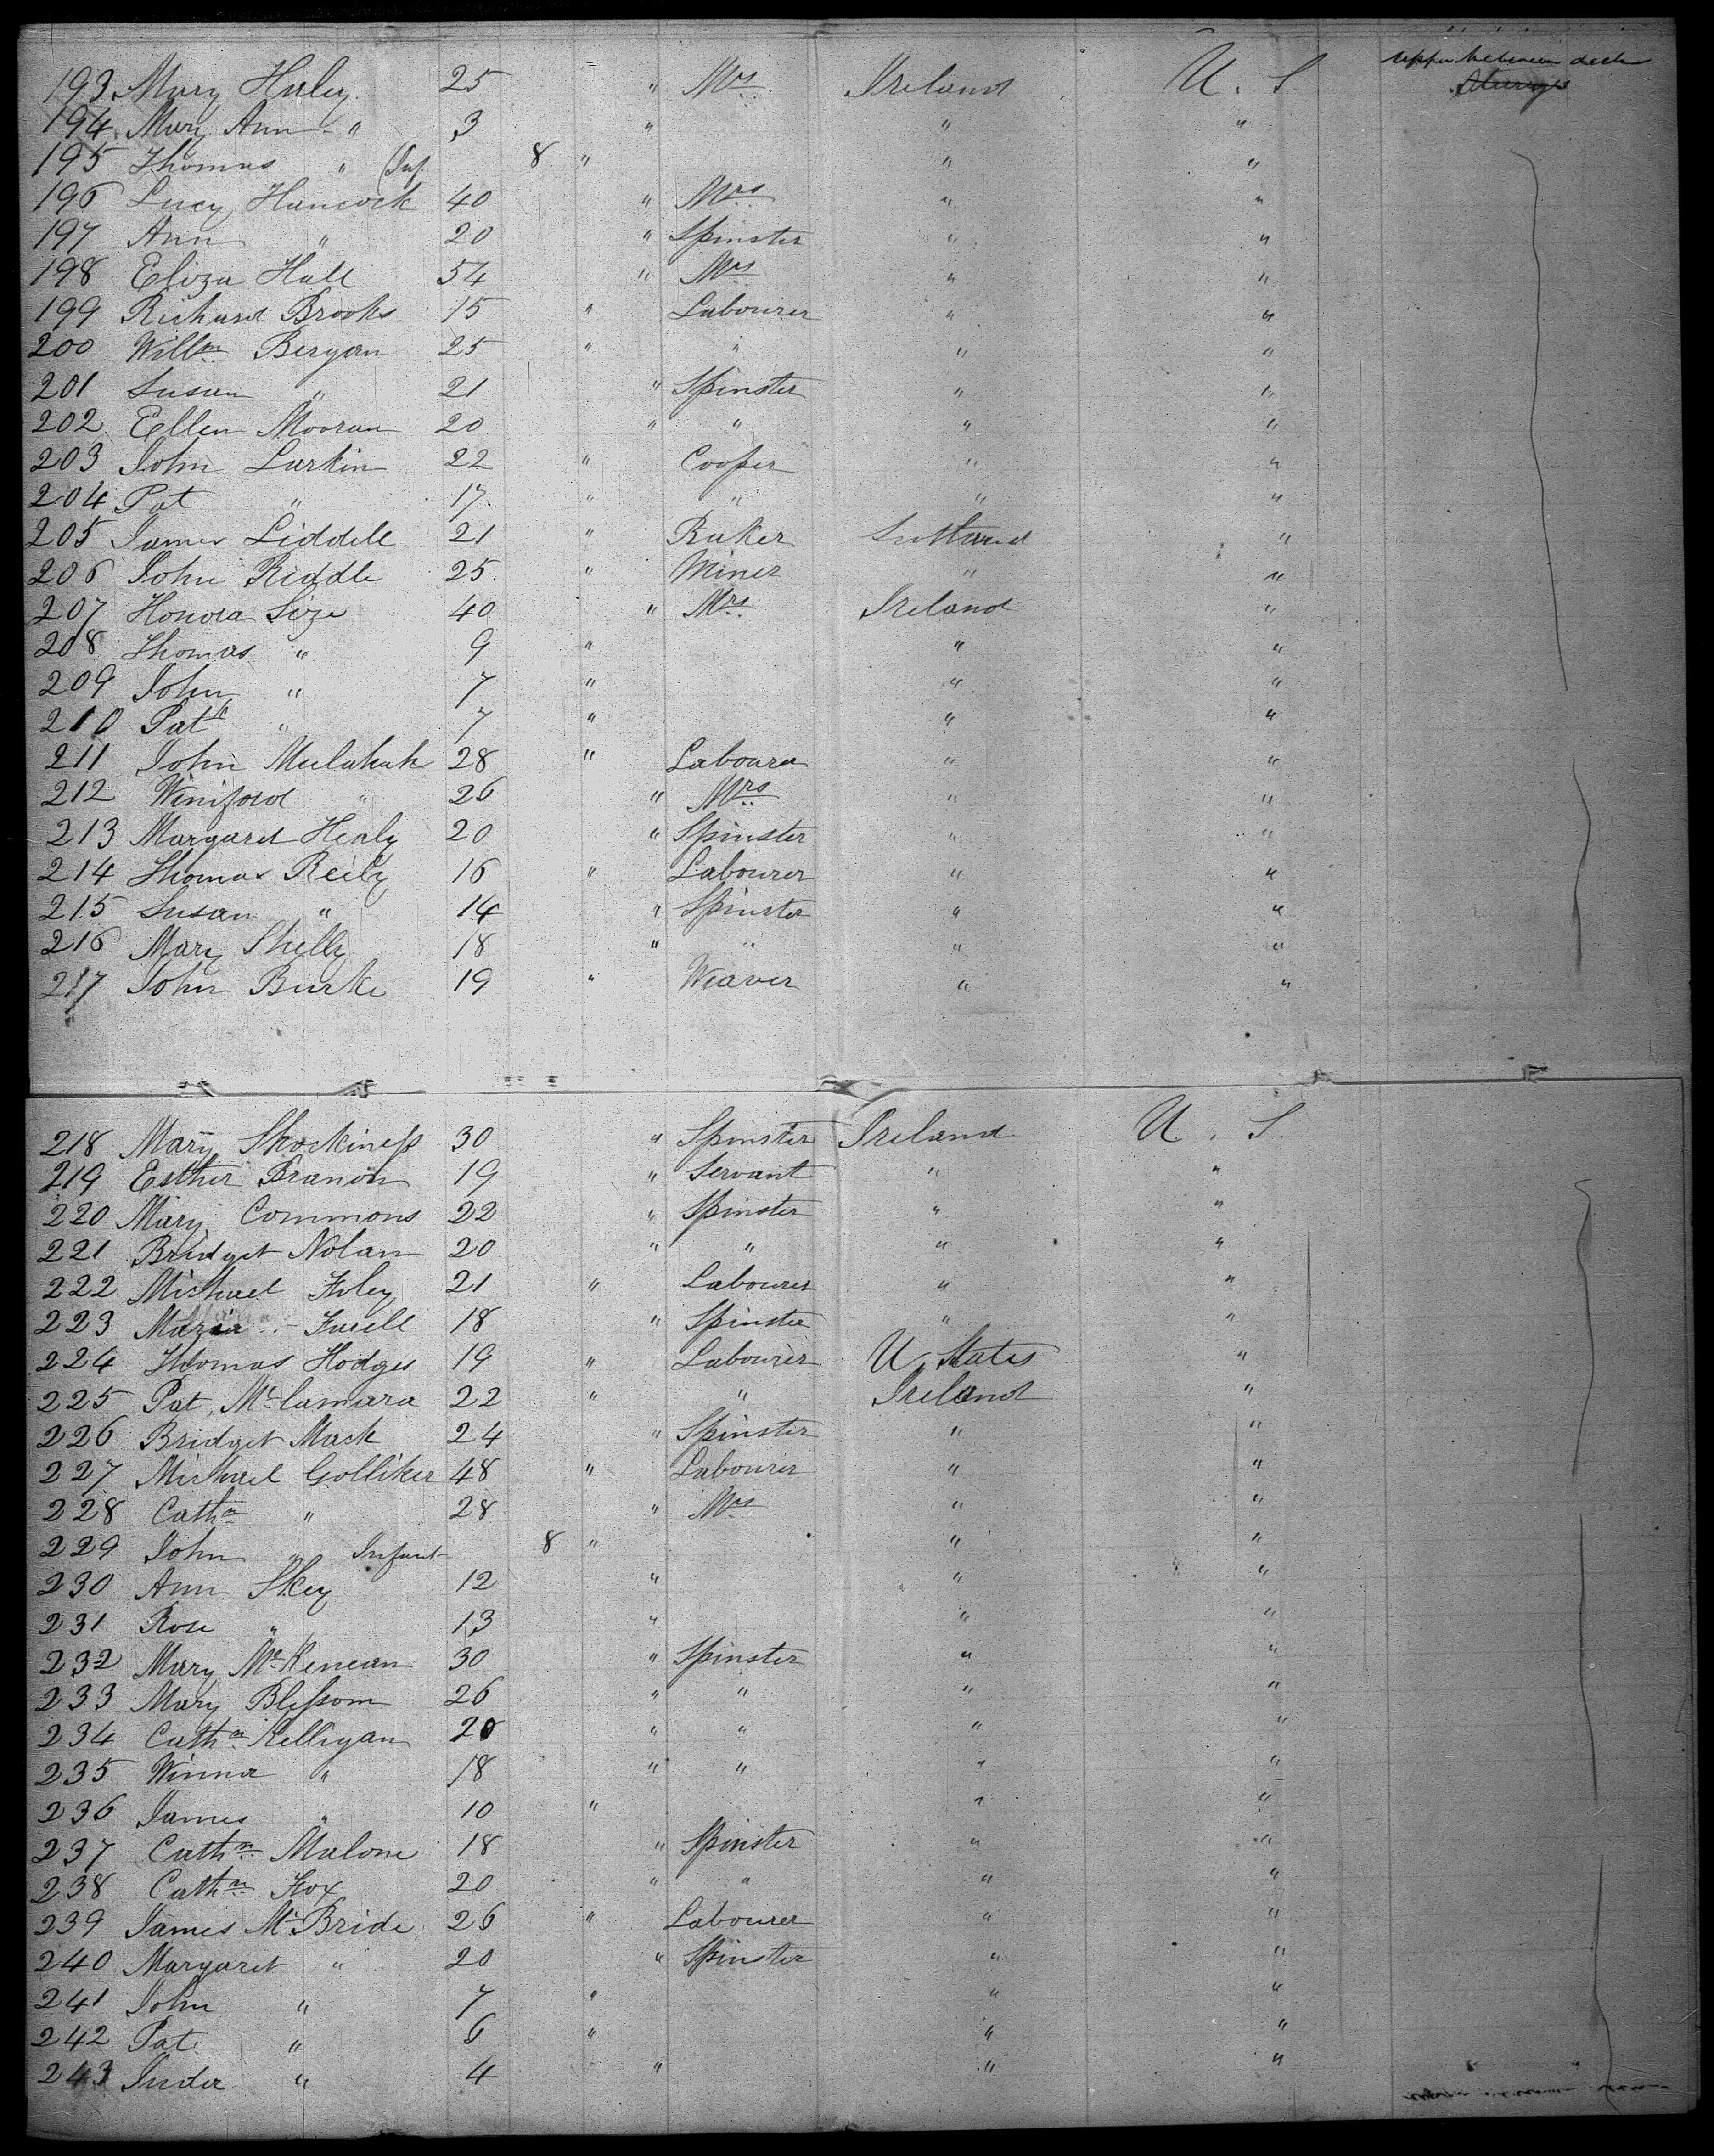 upper between decks
193 Mary Haley 25 " Mrs Ireland U. S. Steerage
194 Mary Ann " 3 " " "
195 Thomas " (Inf 8 " " "
196 Lucy Hancock 40 " Mrs " "
197 Ann " 20 " Spinster " "
198 Eliza Hall 54 " Mrs " "
199 Richard Brooks 15 " Labourer " "
200 Willm Bergan 25 " " " "
201 Susan " 21 " Spinster " "
202 Ellen Mooran 20 " " " "
203 John Larkin 22 " Cooper " "
204 Pat " 17 " " " "
205 James Liddell 21 " Baker Scotland "
206 John Riddle 25 " Miner " "
207 Honora Size 40 " Mrs Ireland "
208 Thomas " 9 " " "
209 John " 7 " " "
210 Patk " 7 " " "
211 John Mulahak 28 " Labourer " "
212 Winiford " 26 " Mrs " "
213 Margaret Healy 20 " Spinster " "
214 Thomas Reily 16 " Labourer " "
215 Susan " 14 " Spinster " "
216 Mary Shelly 18 " " " "
217 John Burke 19 " Weaver " "
218 Mary Shockiness 30 " Spinster Ireland U. S.
219 Esther Branon 19 " Servant " "
220 Mary Commons 22 " Spinster " "
221 Bridget Nolan 20 " " " "
222 Michael Foley 21 " Labourer " "
223 Maria Furell 18 " Spinster " "
224 Thomas Hodges 19 " Labourer U States "
225 Pat McCamara 22 " " Ireland "
226 Bridget Mack 24 " Spinster " "
227 Michael Golliker 48 " Labourer " "
228 Cathn " 28 " Mrs " "
229 John " Infant 8 " " "
230 Ann Skey 12 " " "
231 Rose " 13 " " "
232 Mary McKenean 30 " Spinster " "
233 Mary Blessom 26 " " " "
234 Cathn Kelligan 20 " " " "
235 Winna " 18 " " " "
236 James " 10 " " "
237 Cathn Malone 18 " Spinster " "
238 Cathn Fox 20 " " " "
239 James McBride 26 " Labourer " "
240 Margaret " 20 " Spinster " "
241 John " 7 " " "
242 Pat " 6 " " "
243 Juda " 4 " " "